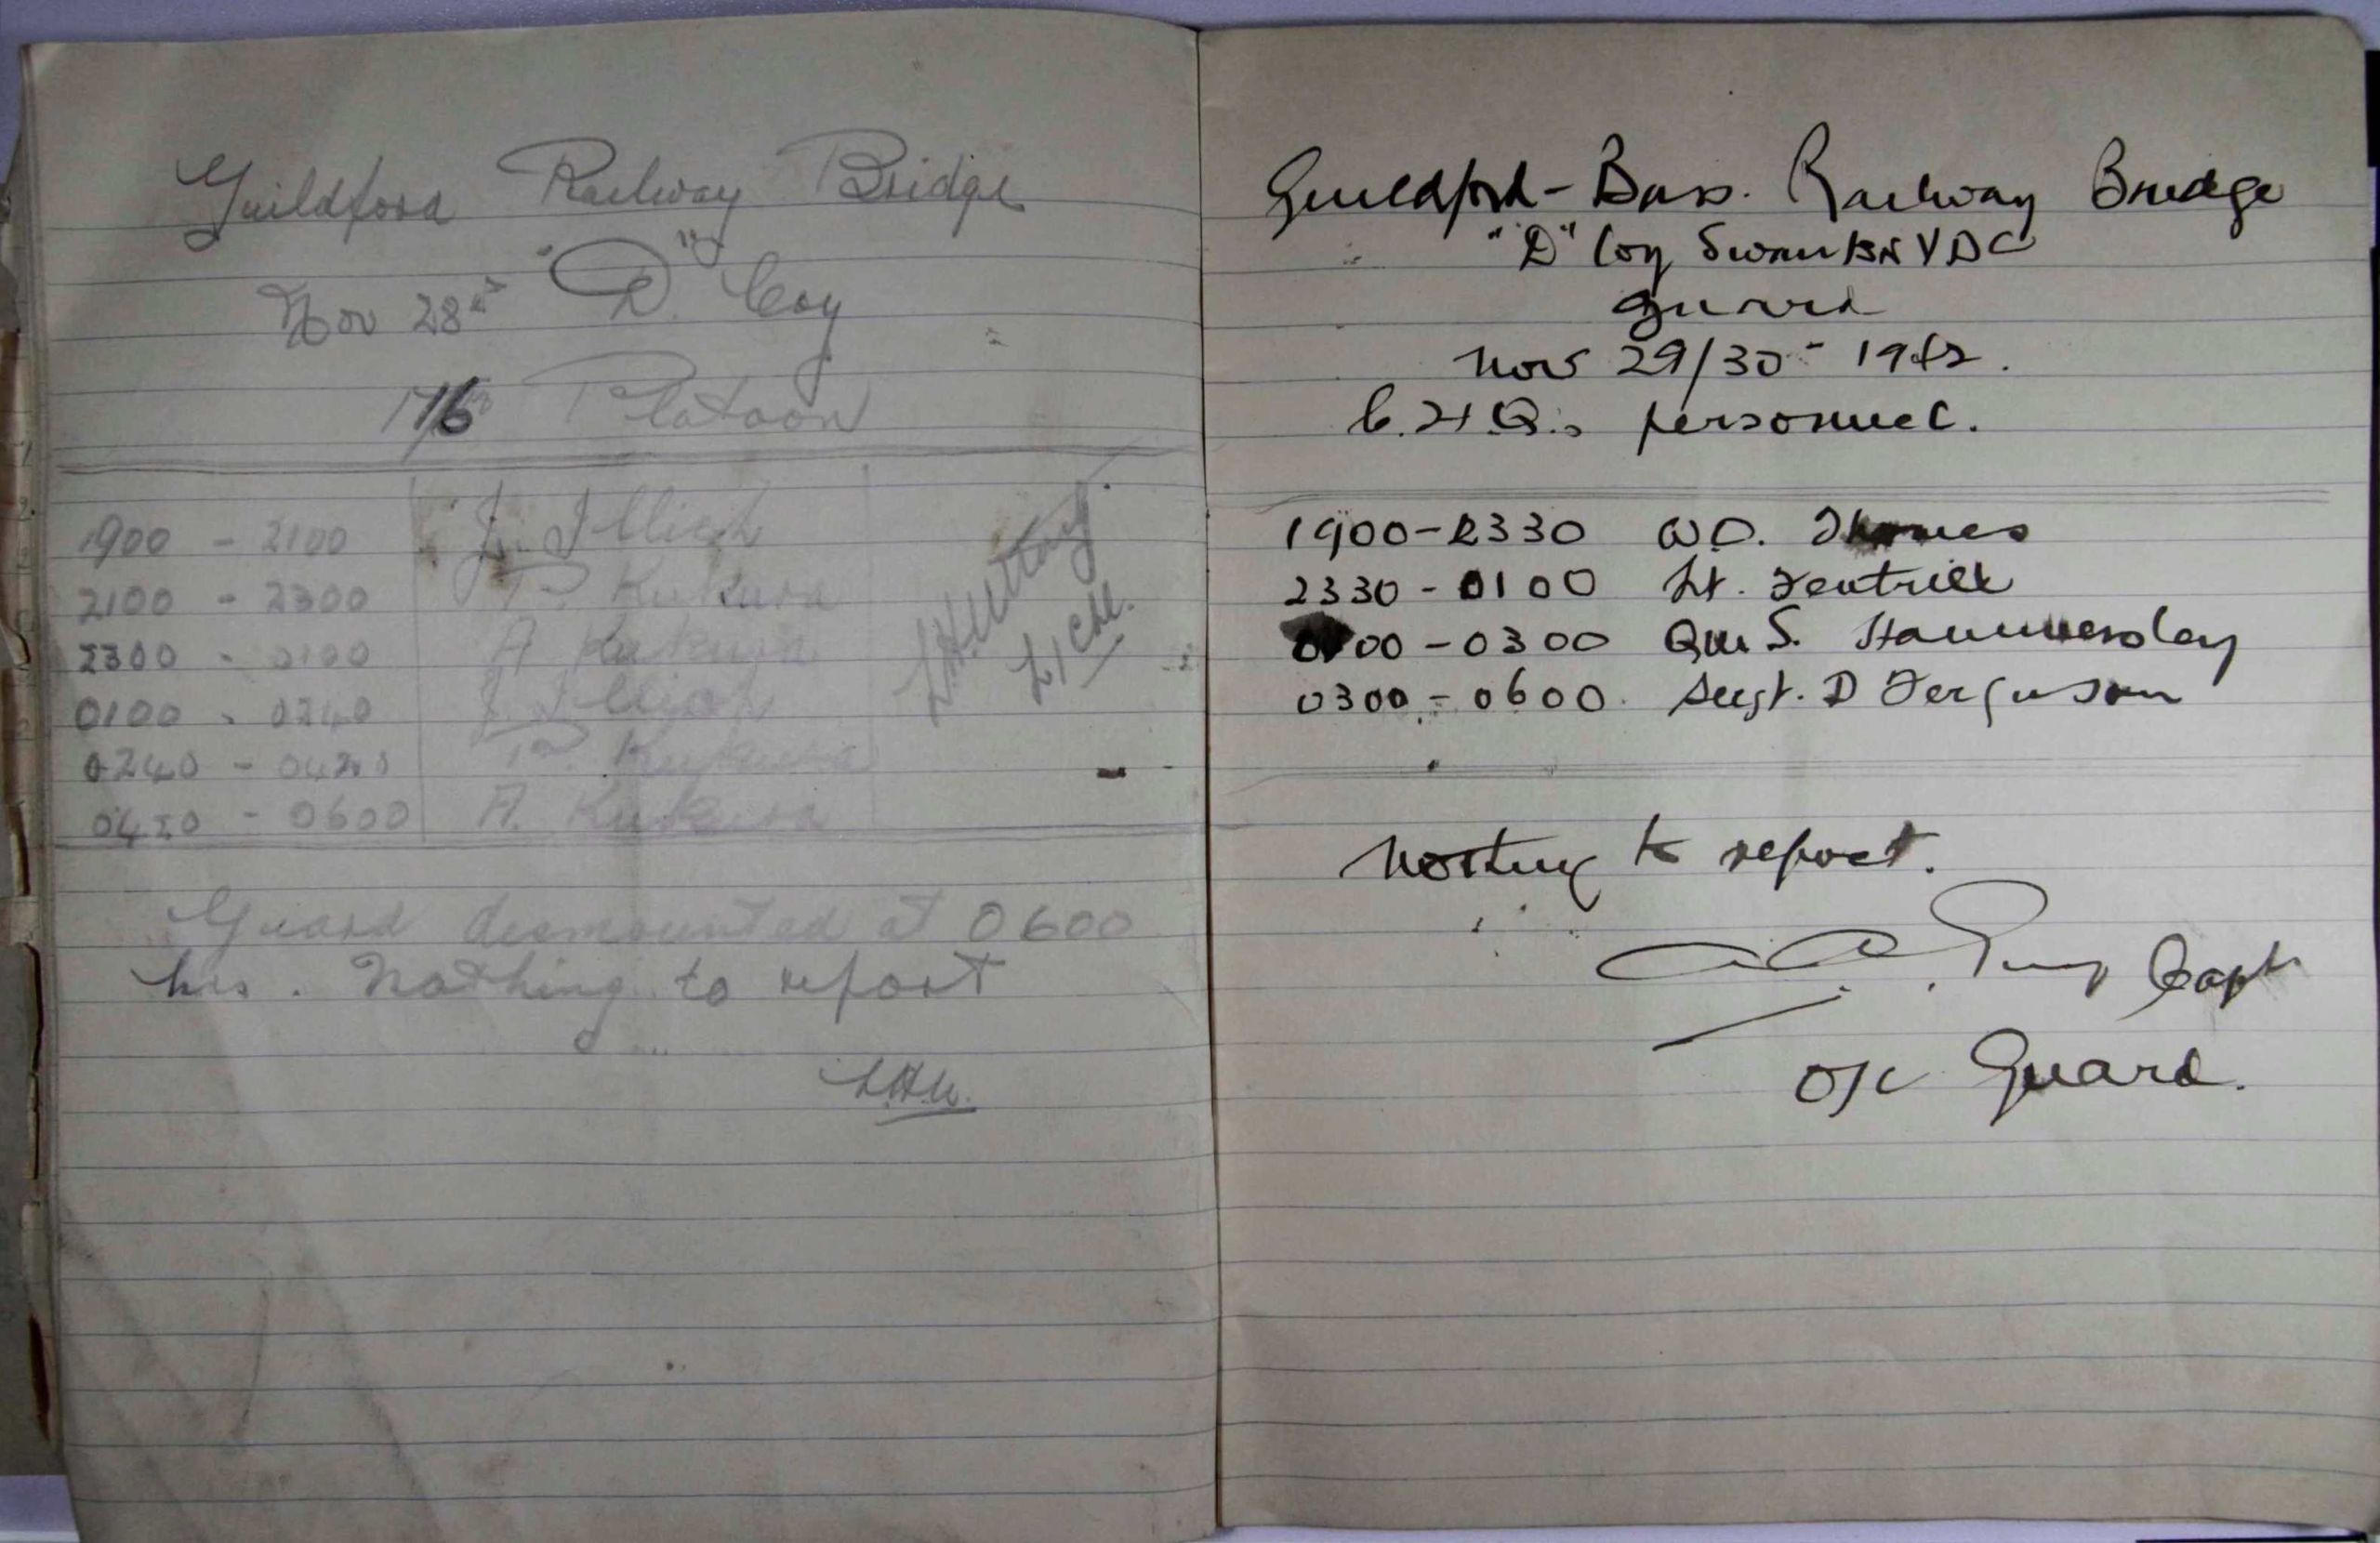 Guildford Railway Bridge
Nov 28th "D" Coy
16 Platoon
1900 - 2100 J. Illich
2100 - 2300 P. Kukura
2300 - 0100 A Kukura
0100 - 0240 J. Illich
0240 - 0420 P. Kukura
0420 - 0600 A. Kukura
L/Cpl.
Guard dismounted at 0600
hrs. Nothing to report
L.H.W.
Guildford - Bass. Railway Bridge
"D" Coy Swan BN VDC
Guard
Nov 29/30 - 1942.
C.H.Q.s personnel.
1900-2330 W.O. Thomes
2330 - 0100 Lt. Fentrill
0100 - 0300 QM S. Hammersley
0300 - 0600. Sergt. D Ferguson
Nothing to report.
Capt
O/C Guard.